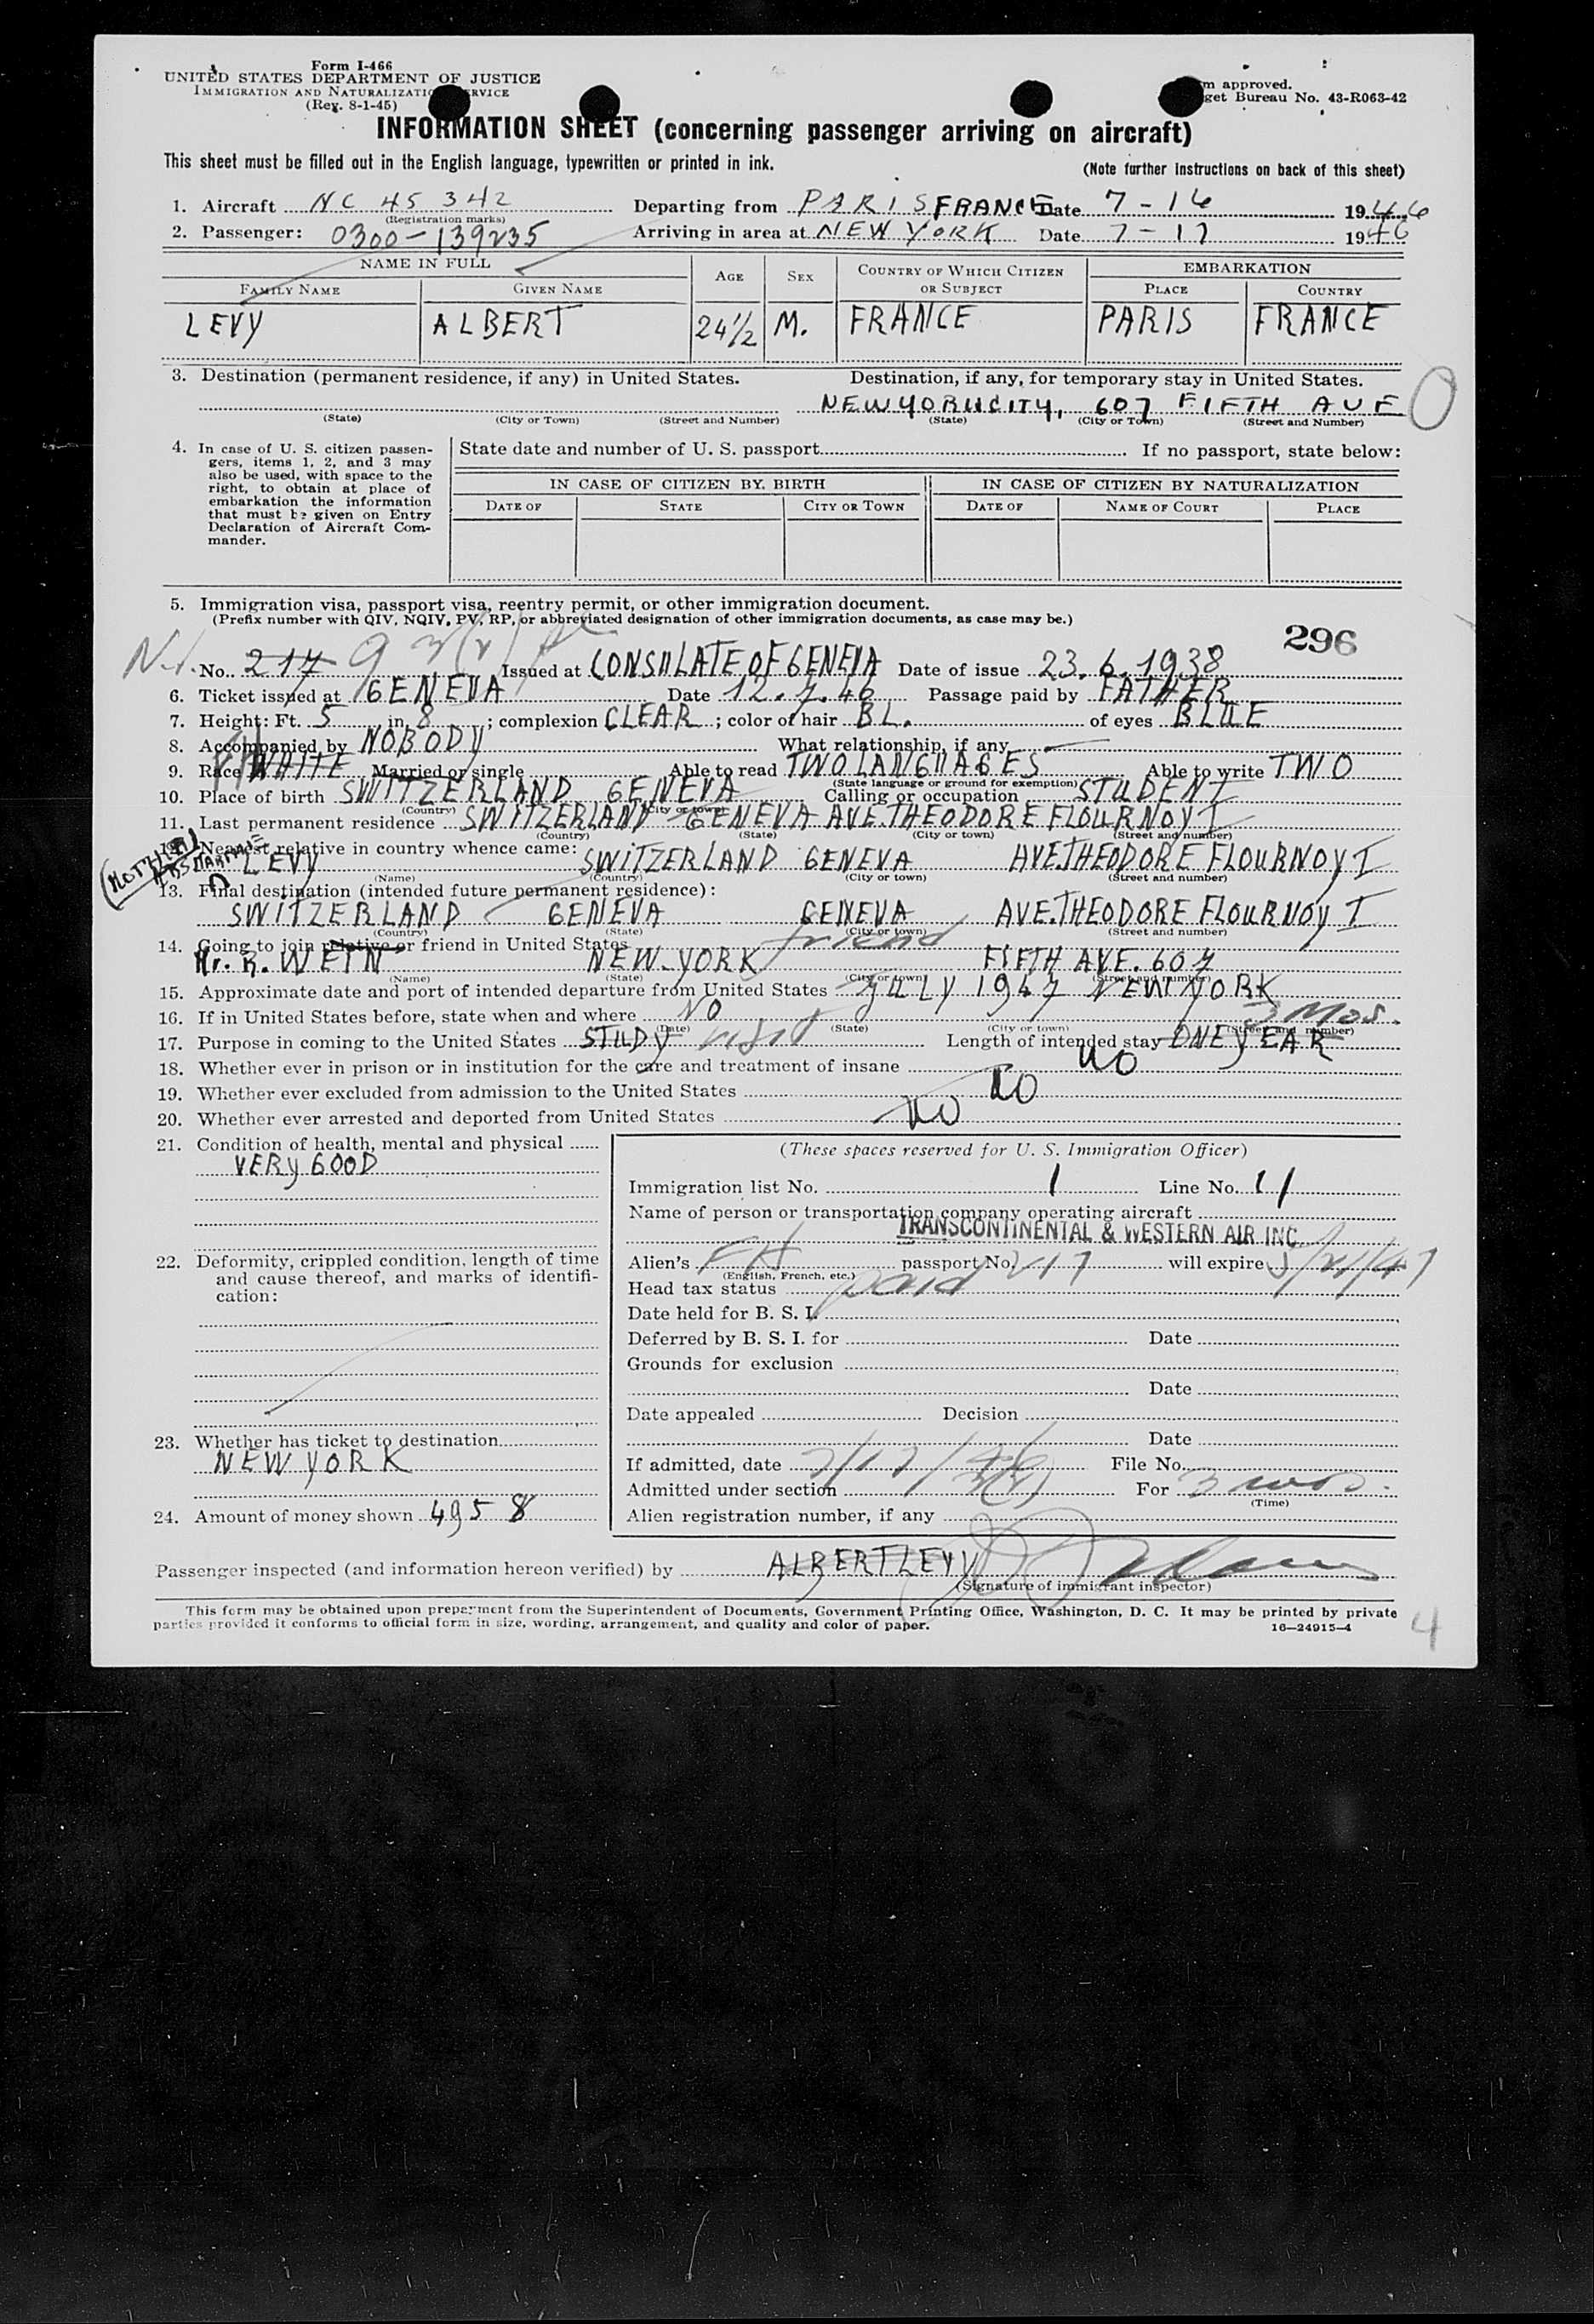 Form I-466
UNITED STATES DEPARTMENT OF JUSTICE
IMMIGRATION AND NATURALIZATION SERVICE
(Rev. 8-1-45)
m approved.
get Bureau No. 43-R063-42
INFORMATION SHEET (concerning passenger arriving on aircraft)
This sheet must be filled out in the English language, typewritten or printed in ink. (Note further instructions on back of this sheet)
1. Aircraft NC 45 342 Departing from PARIS FRANCE Date 7-16 1946
(Registration marks)
2. Passenger: 0300-139235 Arriving in area at NEW YORK Date 7-17 1946
NAME IN FULL AGE SEX COUNTRY OF WHICH CITIZEN OR SUBJECT EMBARKATION
FAMILY NAME GIVEN NAME PLACE COUNTRY
LEVY ALBERT 24½ M. FRANCE PARIS FRANCE
3. Destination (permanent residence, if any) in United States. Destination, if any, for temporary stay in United States.
NEW YORK CITY, 607 FIFTH AVE
(State) (City or Town) (Street and Number) (State) (City or Town) (Street and Number)
4. In case of U. S. citizen passengers, items 1, 2, and 3 may also be used, with space to the right, to obtain at place of embarkation the information that must be given on Entry Declaration of Aircraft Commander.
State date and number of U. S. passport If no passport, state below:
IN CASE OF CITIZEN BY BIRTH IN CASE OF CITIZEN BY NATURALIZATION
DATE OF STATE CITY OR TOWN DATE OF NAME OF COURT PLACE
5. Immigration visa, passport visa, reentry permit, or other immigration document.
(Prefix number with QIV, NQIV, PV, RP, or abbreviated designation of other immigration documents, as case may be.)
296
No. 217 Issued at CONSULATE OF GENEVA Date of issue 23.6.1938
6. Ticket issued at GENEVA Date 12.7.46 Passage paid by FATHER
7. Height: Ft. 5 in. 8 ; complexion CLEAR ; color of hair BL. of eyes BLUE
8. Accompanied by NOBODY What relationship, if any
9. Race WHITE Married or single Able to read TWO LANGUAGES Able to write TWO
(State language or ground for exemption)
10. Place of birth SWITZERLAND GENEVA Calling or occupation STUDENT
(Country) (City or town)
11. Last permanent residence SWITZERLAND GENEVA AVE. THEODORE FLOURNOY I
(Country) (State) (City or town) (Street and number)
(MOTHER)
12. Nearest relative in country whence came:
LEVY SWITZERLAND GENEVA AVE. THEODORE FLOURNOY I
(Name) (Country) (City or town) (Street and number)
13. Final destination (intended future permanent residence):
SWITZERLAND GENEVA GENEVA AVE. THEODORE FLOURNOY I
(Country) (State) (City or town) (Street and number)
14. Going to join relative or friend in United States friend
Mr. R. WEIN NEW-YORK FIFTH AVE. 607
(Name) (State) (City or town) (Street and number)
15. Approximate date and port of intended departure from United States JULY 1947 NEW YORK
16. If in United States before, state when and where NO 3 Mos.
(Date) (State) (City or town) (Street and number)
17. Purpose in coming to the United States STUDY visit Length of intended stay ONE YEAR
18. Whether ever in prison or in institution for the care and treatment of insane NO
19. Whether ever excluded from admission to the United States NO
20. Whether ever arrested and deported from United States NO
21. Condition of health, mental and physical
VERY GOOD
22. Deformity, crippled condition, length of time and cause thereof, and marks of identification:
23. Whether has ticket to destination
NEW YORK
24. Amount of money shown 495 $
(These spaces reserved for U. S. Immigration Officer)
Immigration list No. 1 Line No. 11
Name of person or transportation company operating aircraft
TRANSCONTINENTAL & WESTERN AIR INC
Alien's passport No. 217 will expire
(English, French, etc.)
Head tax status paid
Date held for B. S. I.
Deferred by B. S. I. for Date
Grounds for exclusion
Date
Date appealed Decision
Date
If admitted, date 7/17/46 File No.
Admitted under section 3(2) For 3 mos.
(Time)
Alien registration number, if any
Passenger inspected (and information hereon verified) by ALBERT LEVY
(Signature of immigrant inspector)
This form may be obtained upon prepayment from the Superintendent of Documents, Government Printing Office, Washington, D. C. It may be printed by private
parties provided it conforms to official form in size, wording, arrangement, and quality and color of paper. 16—24915-4
4